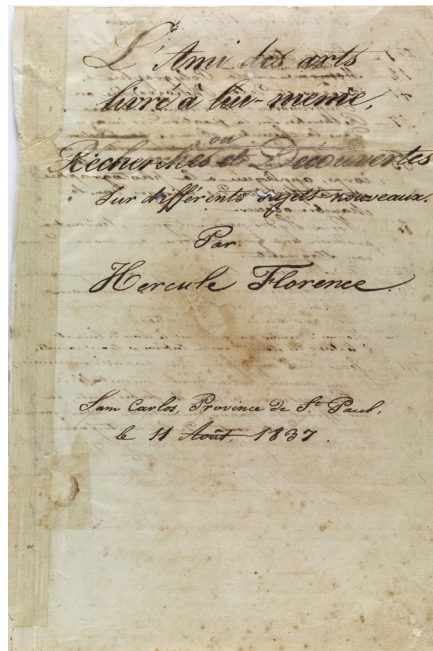 L'Ami des arts
livré à lui-meme,
ou
Recherches et Découvertes
sur différents sujets nouveaux.
Par
Hercule Florence.
San Carlos, Province de St. Paul,
le 11 Août 1837.